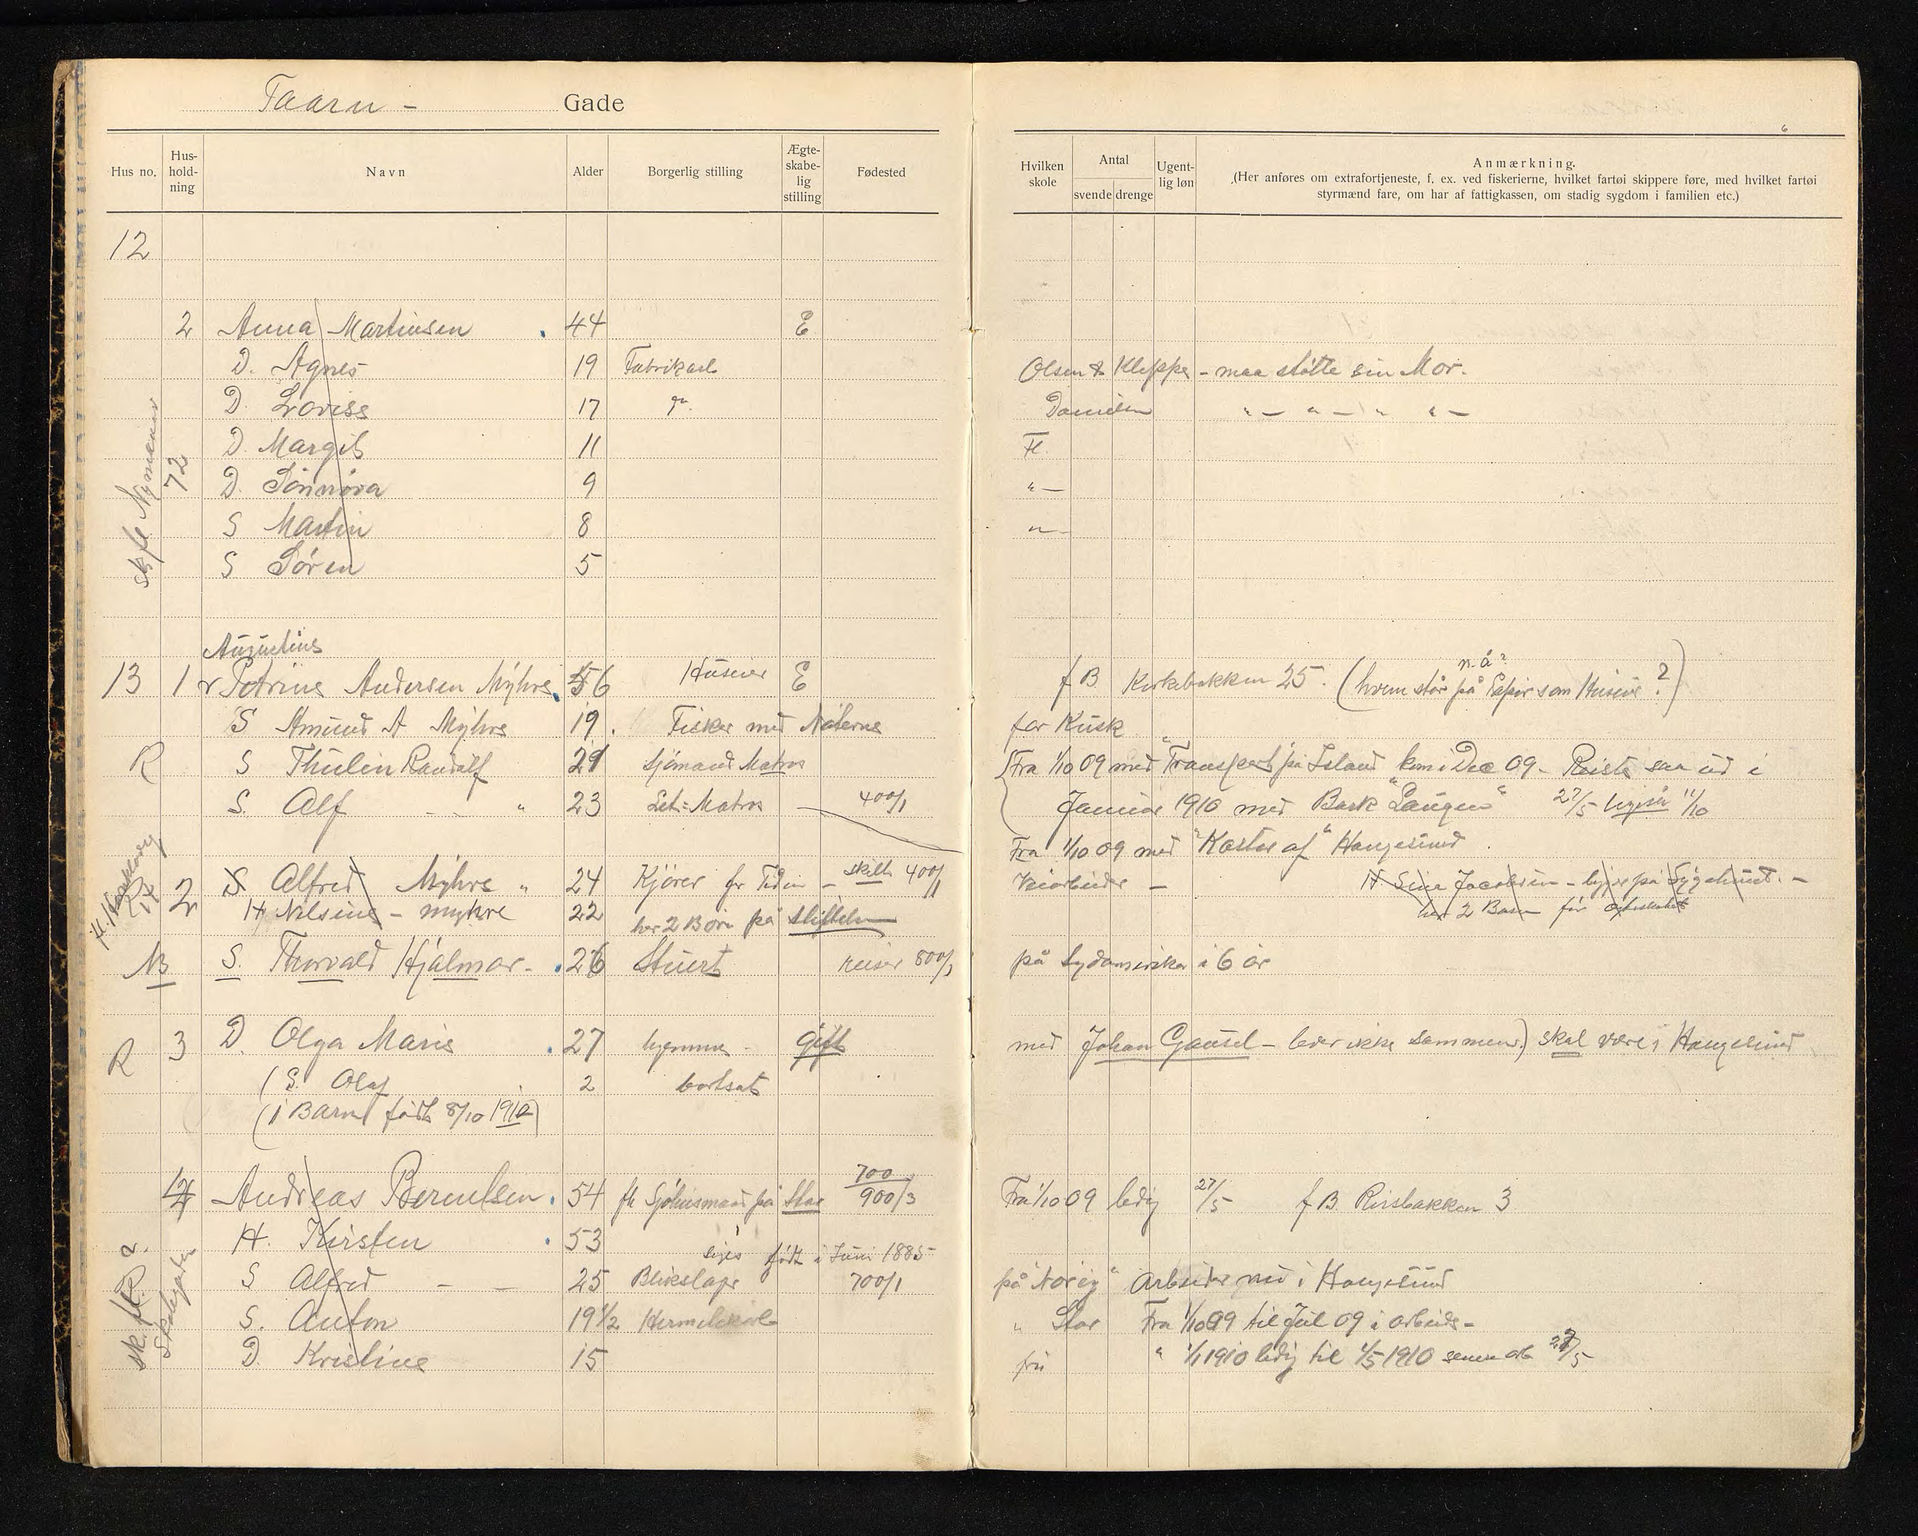 Taarn - Gade
Hus no. Hus-holdning Navn Alder Borgerlig stilling Ægte-skabe-lig stilling Fødested
Hvilken skole Antal svende drenge Ugent-lig løn Anmærkning.
(Her anføres om extrafortjeneste, f. ex. ved fiskerierne, hvilket fartøi skippere føre, med hvilket fartøi
styrmænd fare, om har af fattigkassen, om stadig sygdom i familien etc.)
6
12
2 Anna Martinsen 44 E
D. Agnes 19 Fabrikarb Olsen & Kleppe - maa støtte sin Mor.
D Lovise 17 Danielsen " — " — " " —
D Margit 11 Fl.
72
D. Sønnøva 9 " —
S Martin 8 " —
S Søren 5
Augustins
13 1 Petrine Andersen Myhre 56 Huseier E f B Kirkebakken 25. (hvem står på Papir som Huseier ?)
n. å?
S Amund A Myhre 19. Fisker med Nøterne for Kusk
R S Thulin Randulf 21 Sjømand Matros Fra 1/10 09 med "Transport" på Island kom i Dec 09 - Reiste saa ud i
S. Alf " 23 Let-Matros 400/1 Januar 1910 med Bark "Laugen" 27/5 11/10
Fra 1/10 09 med "Kastor af" Haugesund.
2 S Alfred Myhre " 24 Kjører for Tiden - skilt 400/1 Veiarbeider -
H Sine Jacobsen - ligger på Sygehuset. -
H Nilsine - Myhre 22 har 2 Børn på Stiftelsen
har 2 Barn før
NB S. Thorvald Hjalmar - 26 Stuert reiser 800/1 på Sydamerika i 6 år
R 3 D. Olga Marie 27 hjemme - gift med Johan Gausel - lever ikke sammen) skal være i Haugesund
(S. Olaf 2 bortsat
(1 Barn født 8/10 1910)
700
4 Andreas Berentsen 54 på Star 900/3 Fra 1/10 09 ledig 27/5 f B. Risbakken 3
H. Kirsten 53
siges født i Juni 1885
S Alfred — — 25 Blikslager 700/1 på "Norig" Arbeider nu i Haugesund
S. Anton 19 1/2 Hermetikarb " Star Fra 1/10 09 til Jul 09 i arbeide -
D. Kristine 15 fri " 1/1 1910 ledig til 1/5 1910 senere arb 27/5